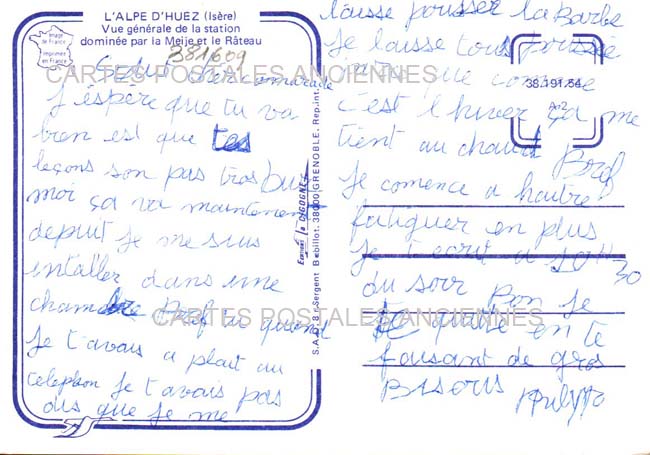 L'ALPE D'HUEZ (Isère)
Vue générale de la station
dominée par la Meije et le Râteau
Image
de France
Imprimée
en France
381609
CARTES POSTALES ANCIENNES
Salut cher camarade
J'espère que tu va
bien est que tes
leçons son pas tros
moi ça va maintenent
depuit je me suis
intaller dans une
chambre quend
Je t'avais a
telephon Je t'avais pas
dis que je me
laisse pousser la Barbe
Je laisse tous
que comme
c'est l'hiver ça me
tient au chaud Bref
Je comence a
fatiguer en plus
Je t'ecrit a 10H
30
du soir Bon je
te quitte en te
faisant de gros
Bisous
CARTES POSTALES ANCIENNES
38.191.54
A.2
Editions la CIGOGNE
S.A.D. 8 r. Sergent Bobillot, 38000 GRENOBLE. Rep. int.